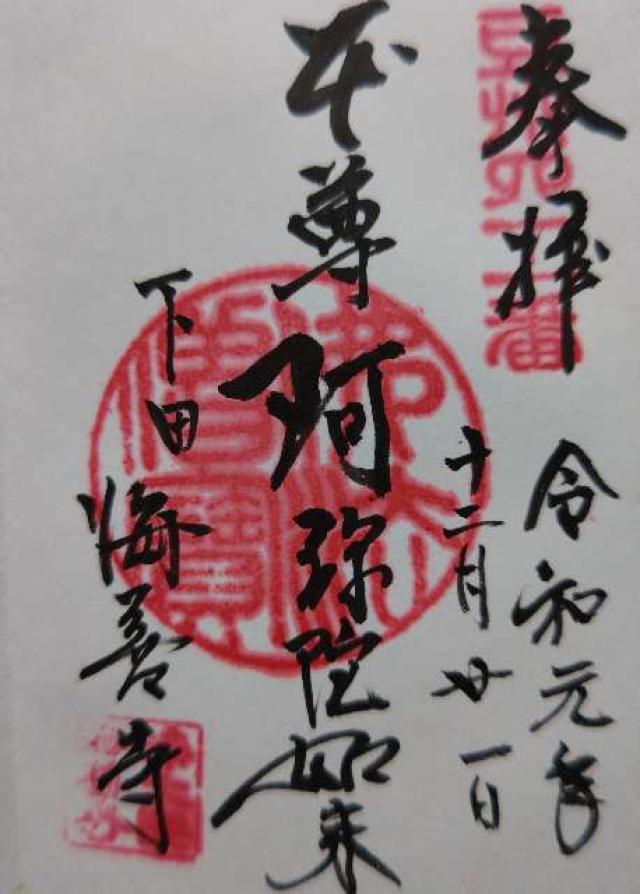 奉拝
令和元年
十二月廿一日
本尊 阿弥陀如来
下田 海善寺